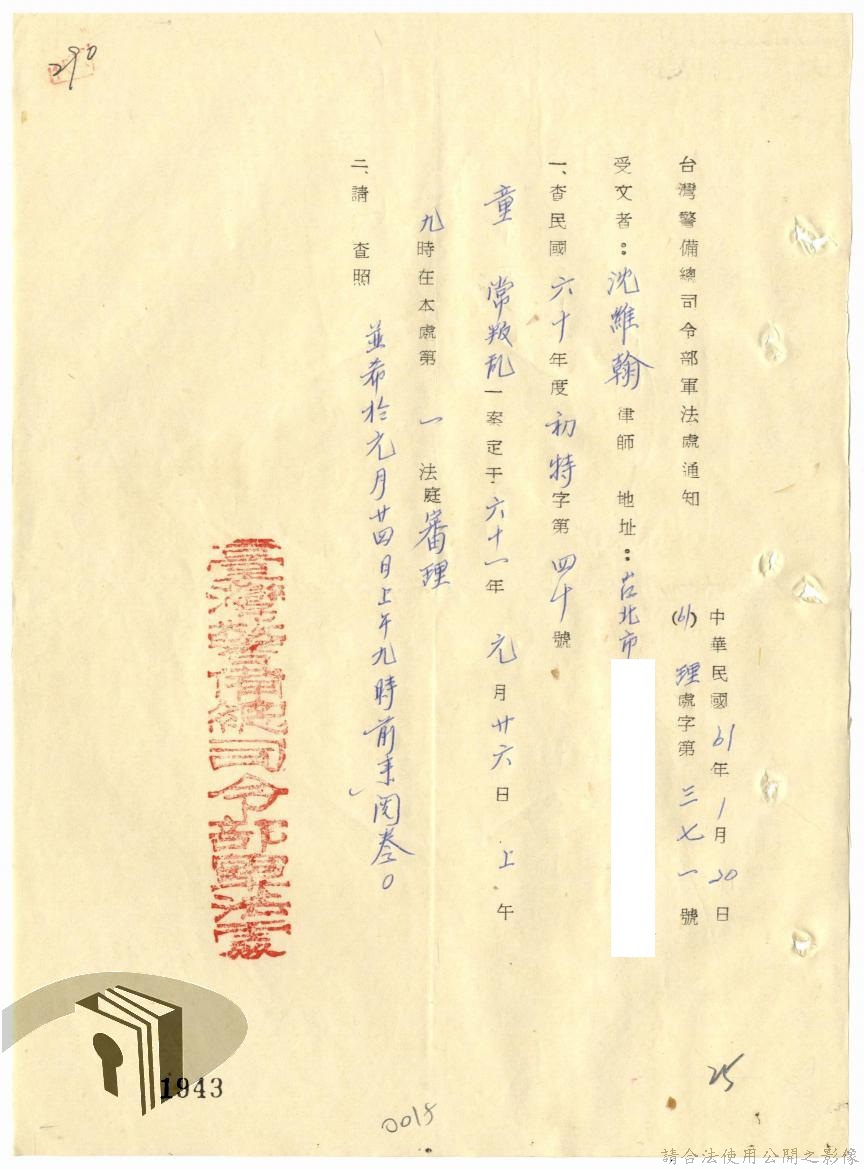 290
台灣警備總司令部軍法處通知
中華民國61年1月20日
(61)理處字第三七一號
受文者：沈維翰律師 地址：台北市
一、查民國六十年度初特字第四十號
童常叛乱一案定于六十一年元月廿六日上午
九時在本處第一法庭審理
二、請查照 並希於元月廿四日上午九時前来閱卷。
臺灣警備總司令部軍法處
25
1943
0018
請合法使用公開之影像